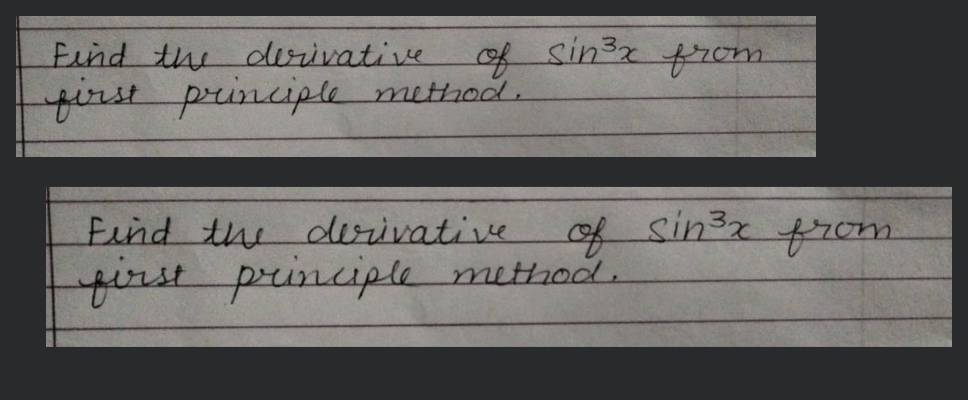 Find the derivative of sin³x from
first principle method.
Find the derivative of sin³x from
first principle method.